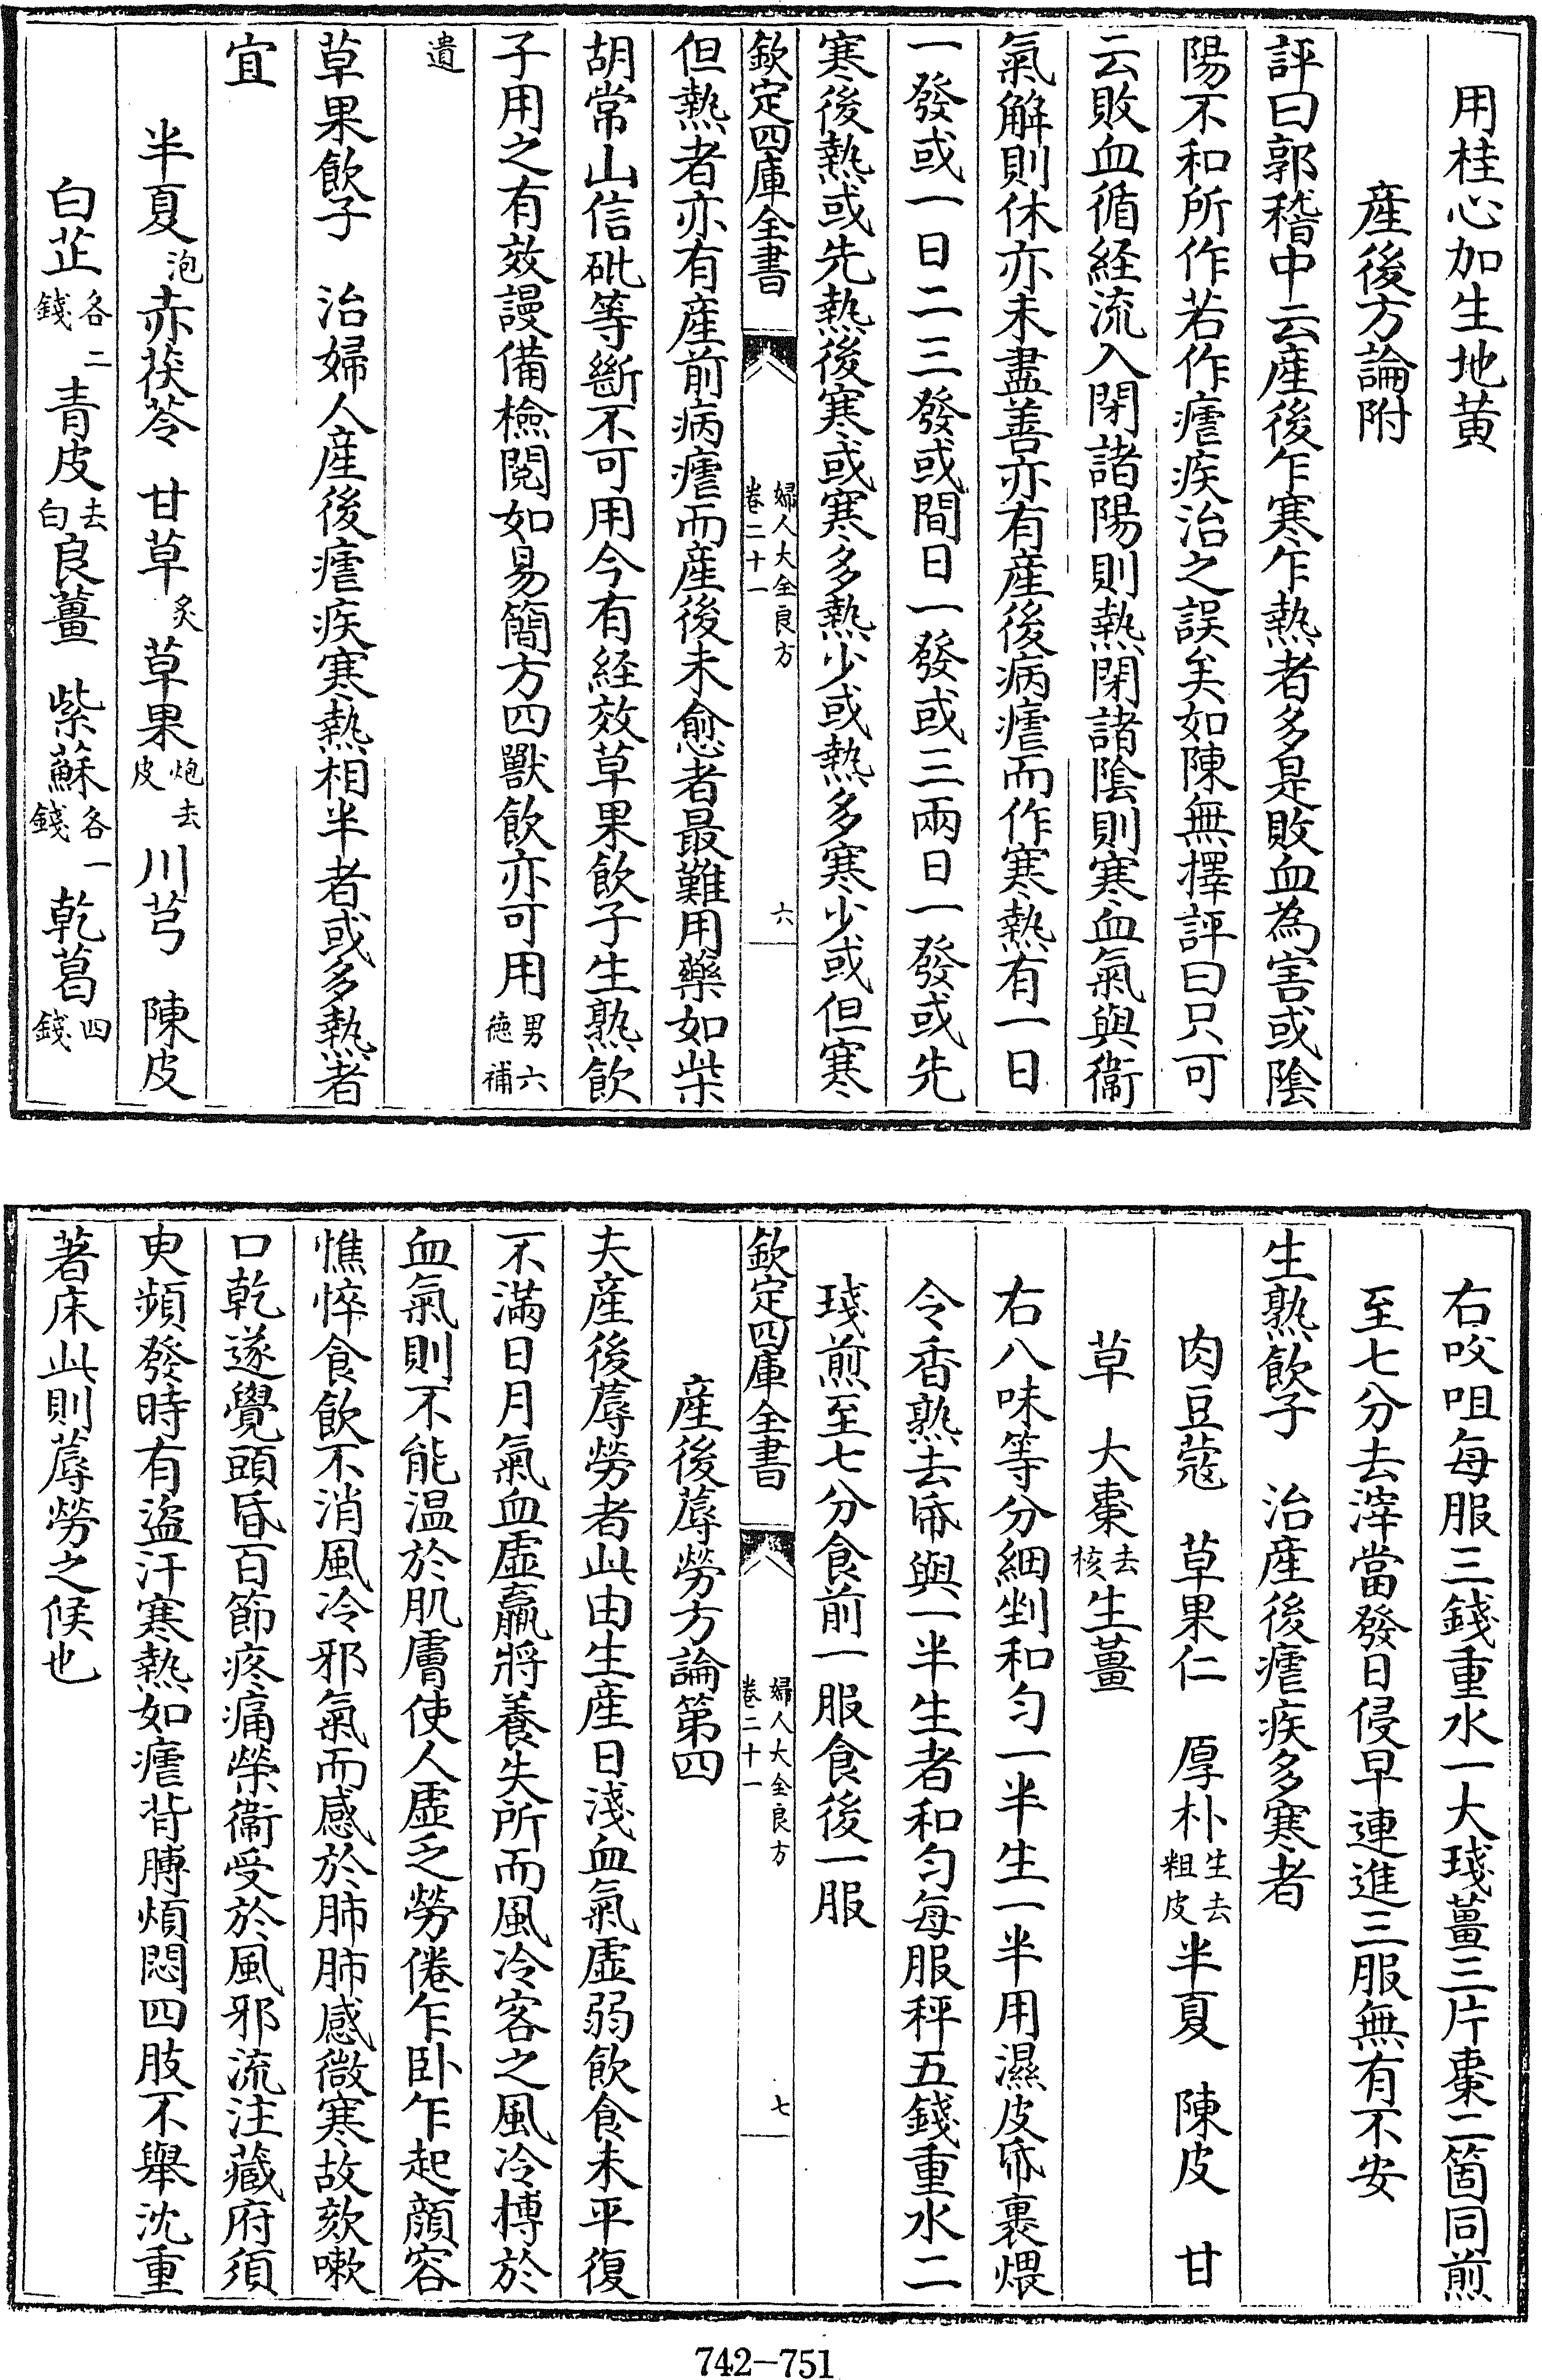 用桂心加生地黄
産後方論附
評曰郭稽中云産後乍寒乍熱者多是敗血為害或陰
陽不和所作若作瘧疾治之誤矣如陳無擇評曰只可
云敗血循経流入閉諸陽則熱閉諸陰則寒血氣與衞
氣解則休亦未盡善亦有産後病瘧而作寒熱有一日
一發或一日二三發或間日一發或三兩日一發或先
寒後熱或先熱後寒或寒多熱少或熱多寒少或但寒
欽定四庫全書 婦人大全良方 卷二十一 六
但熱者亦有産前病瘧而産後未愈者最難用藥如柴
胡常山信砒等斷不可用今有経效草果飲子生熟飲
子用之有效謾備檢閱如易簡方四獸飲亦可用男六德補
遺
草果飲子 治婦人産後瘧疾寒熱相半者或多熱者
宜
半夏泡赤茯苓 甘草炙草果炮去皮川芎 陳皮
白芷各二錢青皮去白良薑 紫蘇各一錢乾葛四錢
右㕮咀每服三錢重水一大琖薑三片棗二箇同煎
至七分去滓當發日侵早連進三服無有不安
生熟飲子 治産後瘧疾多寒者
肉豆蔻 草果仁 厚朴生去粗皮半夏 陳皮 甘
草 大棗去核生薑
右八味等分細剉和勻一半生一半用濕皮帋裹煨
令香熟去帋與一半生者和勻每服秤五錢重水二
琖煎至七分食前一服食後一服
欽定四庫全書 婦人大全良方 卷二十一 七
産後蓐勞方論第四
夫産後蓐勞者此由生産日淺血氣虛弱飲食未平復
不滿日月氣血虛羸將養失所而風冷客之風冷摶於
血氣則不能温於肌膚使人虛乏勞倦乍卧乍起顔容
憔悴食飲不消風冷邪氣而感於肺肺感微寒故欬嗽
口乾遂覺頭昏百節疼痛榮衞受於風邪流注藏府須
㬰頻發時有盜汗寒熱如瘧背膊煩悶四肢不舉沈重
著床此則蓐勞之候也
742-751